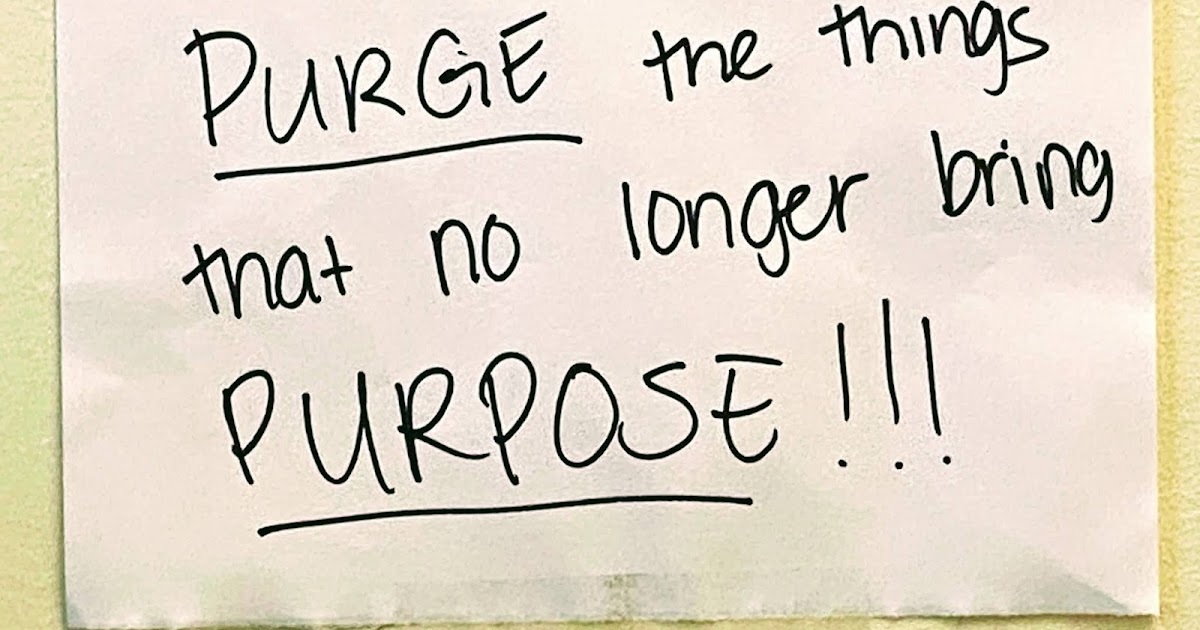 PURGE the things
that no longer bring
PURPOSE!!!